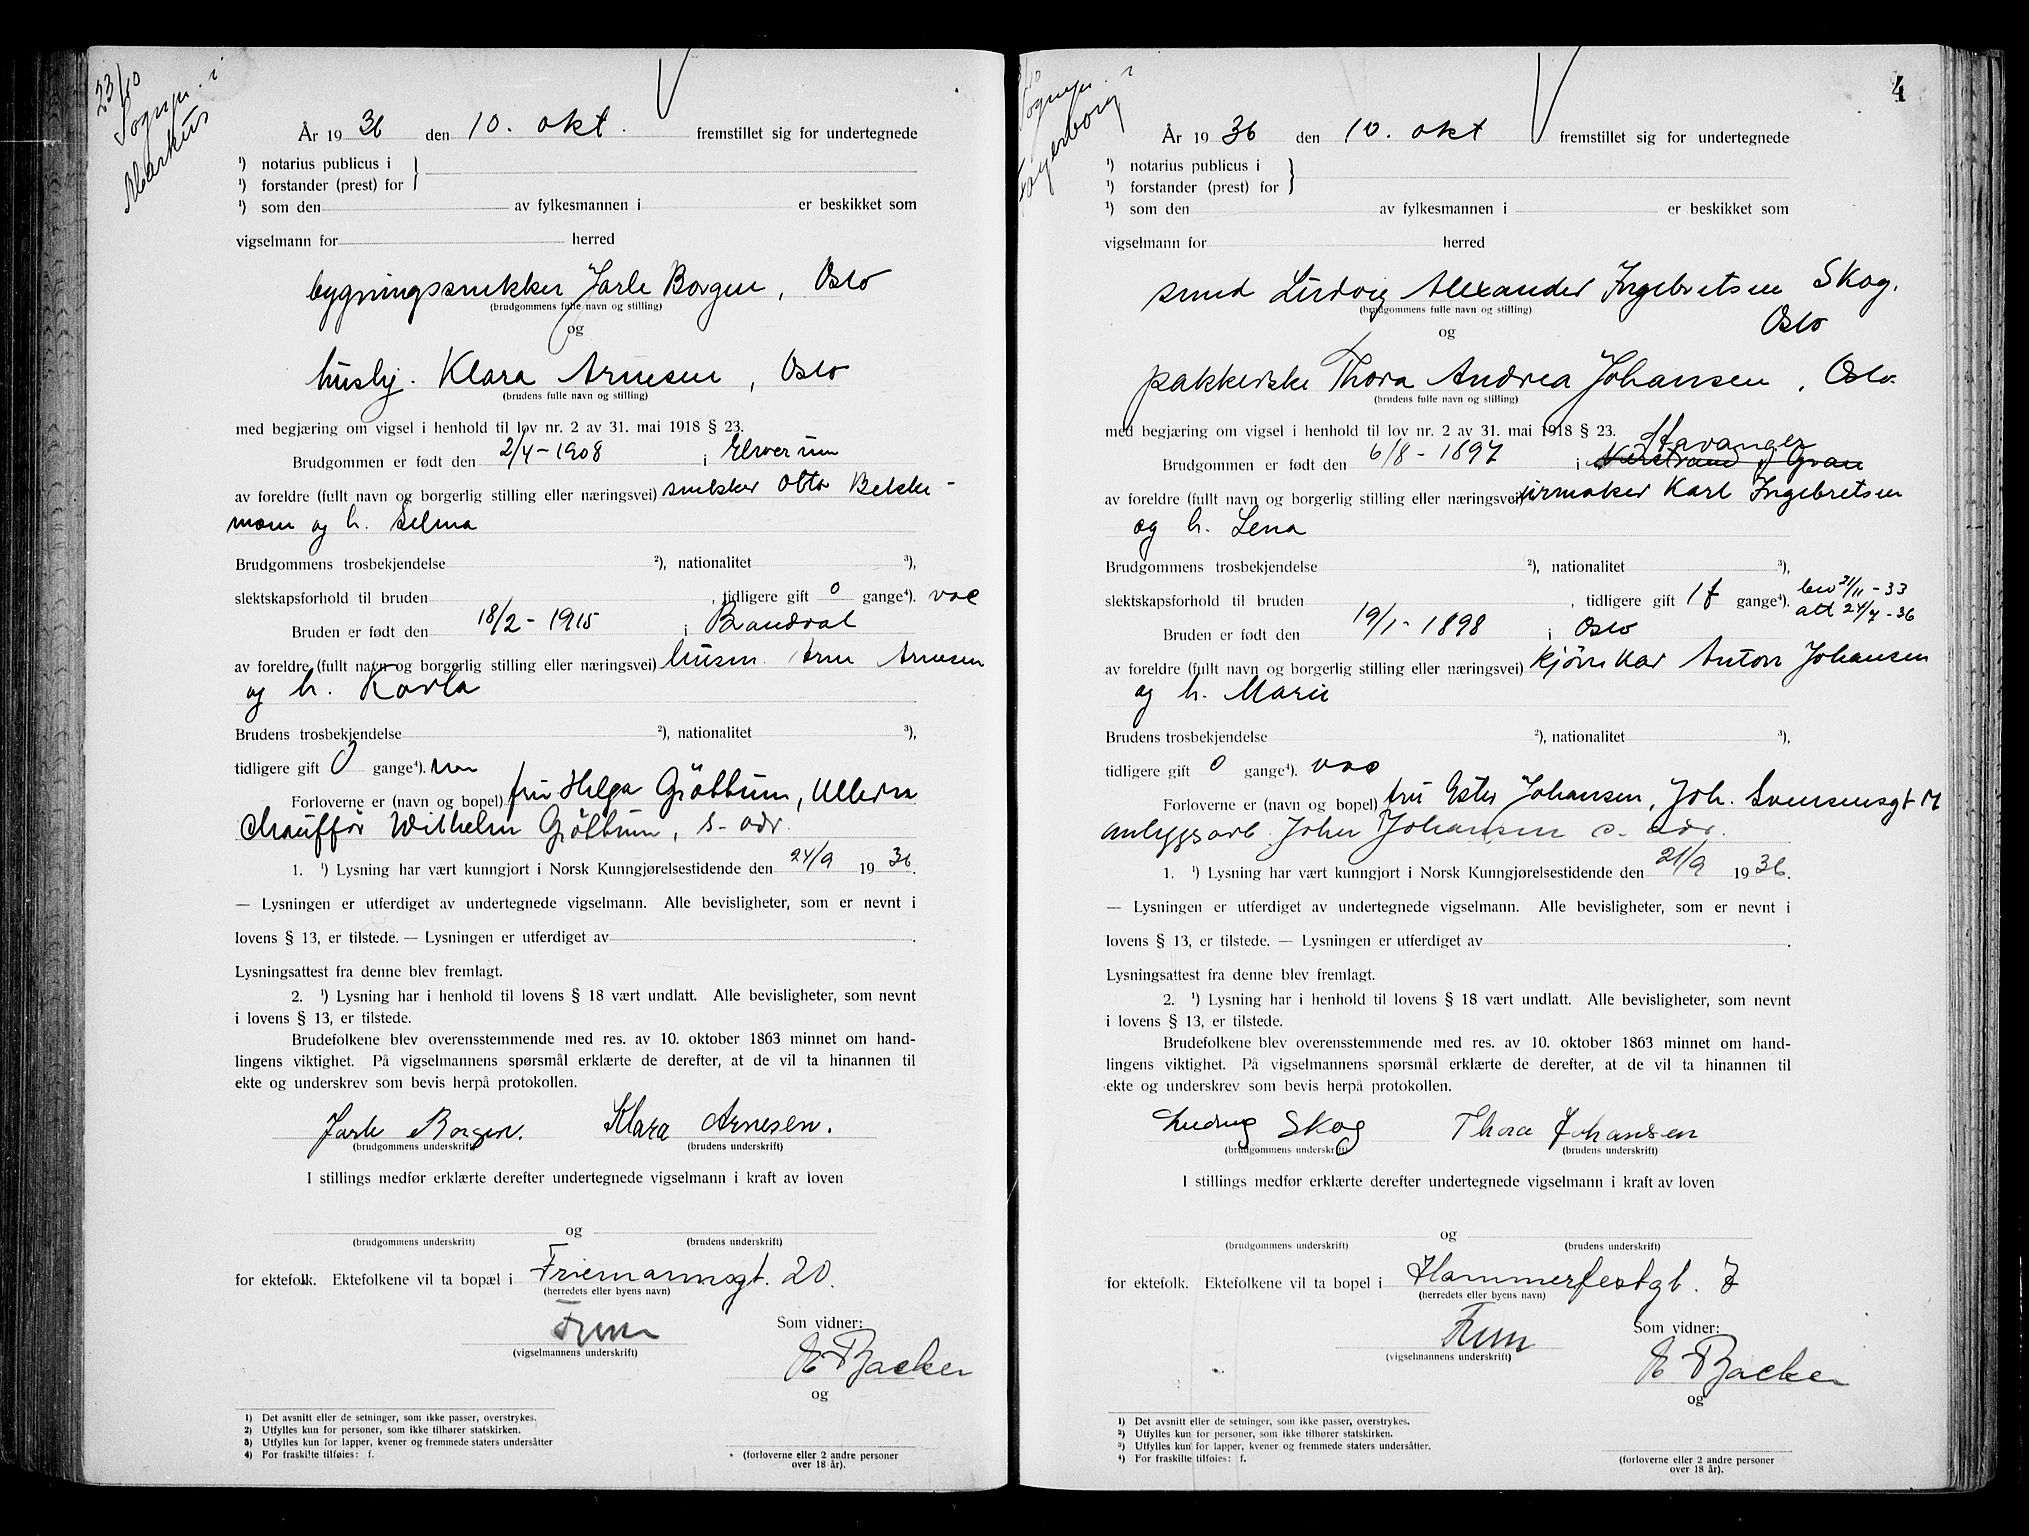 23/10
Sognepr. i
Markus
År 19 36 den 10. okt. fremstillet sig for undertegnede
¹) notarius publicus i
¹) forstander (prest) for }
¹) som den av fylkesmannen i er beskikket som
vigselmann for herred
bygningssnekker Jarle Borgen, Oslo
(brudgommens fulle navn og stilling)
og
hushj. Klara Arnesen, Oslo
(brudens fulle navn og stilling)
med begjæring om vigsel i henhold til lov nr. 2 av 31. mai 1918 § 23.
Brudgommen er født den 2/4 - 1908 i Elverum
av foreldre (fullt navn og borgerlig stilling eller næringsvei) snekker Otto Bekke-
moen og h. Selma
Brudgommens trosbekjendelse ²), nationalitet ³),
slektskapsforhold til bruden , tidligere gift 0 gange⁴). vac
Bruden er født den 18/2 - 1915 i Brandval
av foreldre (fullt navn og borgerlig stilling eller næringsvei) husm. Arne Arnesen
og h. Karla
Brudens trosbekjendelse ²), nationalitet ³),
tidligere gift 0 gange⁴).
Forloverne er (navn og bopel) fru Helga Gröttum, Ullern
Chaufför Wilhelm Gröttum, s. adr.
1. ¹) Lysning har vært kunngjort i Norsk Kunngjørelsestidende den 24/9 19 36.
— Lysningen er utferdiget av undertegnede vigselmann. Alle bevisligheter, som er nevnt i
lovens § 13, er tilstede. — Lysningen er utferdiget av .
Lysningsattest fra denne blev fremlagt.
2. ¹) Lysning har i henhold til lovens § 18 vært undlatt. Alle bevisligheter, som nevnt
i lovens § 13, er tilstede.
Brudefolkene blev overensstemmende med res. av 10. oktober 1863 minnet om hand-
lingens viktighet. På vigselmannens spørsmål erklærte de derefter, at de vil ta hinannen til
ekte og underskrev som bevis herpå protokollen.
Jarle Borgen. Klara Arnesen.
(brudgommens underskrift) (brudens underskrift)
I stillings medfør erklærte derefter undertegnede vigselmann i kraft av loven
og
(brudgommens underskrift) (brudens underskrift)
for ektefolk. Ektefolkene vil ta bopæl i Friemannsgt. 20.
(herredets eller byens navn)
Som vidner:
(vigselmannens underskrift)
E Backer
og
1) Det avsnitt eller de setninger, som ikke passer, overstrykes.
2) Utfylles kun for personer, som ikke tilhører statskirken.
3) Utfylles kun for lapper, kvener og fremmede staters undersåtter
4) For fraskilte tilføies: f.
(forloverne eller 2 andre personer
over 18 år).
4
Sognepr. i
Fagerborg
År 19 36 den 10. okt fremstillet sig for undertegnede
¹) notarius publicus i
¹) forstander (prest) for }
¹) som den av fylkesmannen i er beskikket som
vigselmann for herred
smed Ludvig Alexander Ingebretsen Skog.
(brudgommens fulle navn og stilling)
Oslo
og
pakkerske Thora Andrea Johansen, Oslo
(brudens fulle navn og stilling)
med begjæring om vigsel i henhold til lov nr. 2 av 31. mai 1918 § 23.
Stavanger
Brudgommen er født den 6/8 - 1897 i
av foreldre (fullt navn og borgerlig stilling eller næringsvei) urmaker Karl Ingebretsen
og h. Lena
Brudgommens trosbekjendelse ²), nationalitet ³),
slektskapsforhold til bruden , tidligere gift 1 f gange⁴). bev 21/11 - 33
att 24/7 - 36
Bruden er født den 19/1 - 1898 i Oslo
av foreldre (fullt navn og borgerlig stilling eller næringsvei) kjörekar Anton Johansen
og h. Marie
Brudens trosbekjendelse ²), nationalitet ³),
tidligere gift 0 gange⁴). vac
Forloverne er (navn og bopel) fru Ester Johansen, Joh. Svensensgt 14
anleggsarb. John Johansen s. adr.
1. ¹) Lysning har vært kunngjort i Norsk Kunngjørelsestidende den 21/9 19 36.
— Lysningen er utferdiget av undertegnede vigselmann. Alle bevisligheter, som er nevnt i
lovens § 13, er tilstede. — Lysningen er utferdiget av .
Lysningsattest fra denne blev fremlagt.
2. ¹) Lysning har i henhold til lovens § 18 vært undlatt. Alle bevisligheter, som nevnt
i lovens § 13, er tilstede.
Brudefolkene blev overensstemmende med res. av 10. oktober 1863 minnet om hand-
lingens viktighet. På vigselmannens spørsmål erklærte de derefter, at de vil ta hinannen til
ekte og underskrev som bevis herpå protokollen.
Ludvig Skog Thora Johansen
(brudgommens underskrift) (brudens underskrift)
I stillings medfør erklærte derefter undertegnede vigselmann i kraft av loven
og
(brudgommens underskrift) (brudens underskrift)
for ektefolk. Ektefolkene vil ta bopel i Hammerfestgt. 7
(herredets eller byens navn)
Som vidner:
(vigselmannens underskrift)
E Backer
og
¹) Det avsnitt eller de setninger, som ikke passer, overstrykes.
²) Utfylles kun for personer, som ikke tilhører statskirken.
³) Utfylles kun for lapper, kvener og fremmede staters undersåtter.
⁴) For fraskilte tilføies: f.
(forloverne eller 2 andre personer
over 18 år).